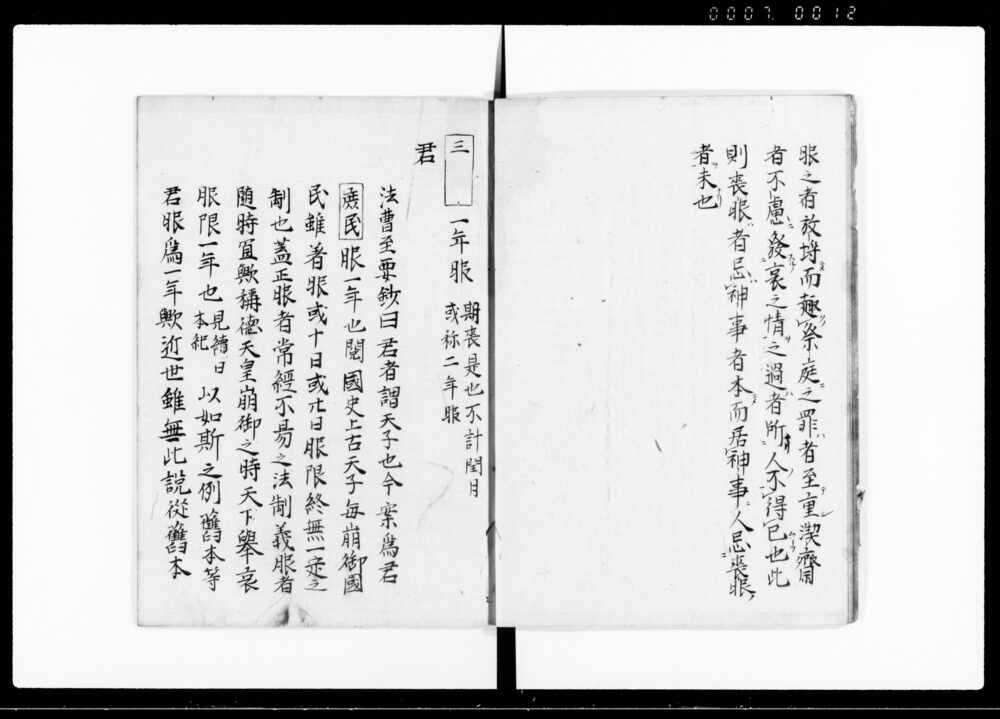 0007 0012
服之者放埒而趣祭庭之罪者至重潔齋
者不慮發哀之情之過者所人不得已也此
則喪服者忌神事者本而居神事人忌喪服
者未也
三
一年服 期喪是也不計閏月
或称二年服
君
法曹至要鈔曰君者謂天子也今案爲君
廣民服一年也閲國史上古天子每崩御國
民雖著服或十日或廿日服限終無一定之
制也蓋正服者常經不易之法制義服者
随時宜歟稱德天皇崩御之時天下擧哀
服限一年也見續日本紀以如斯之例舊本等
君服爲一年歟近世雖無此説從舊本